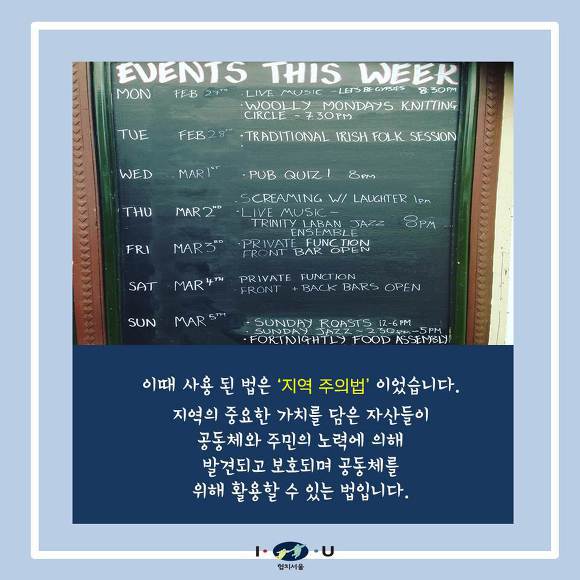 EVENTS THIS WEEK
MON FEB 27TH · LIVE MUSIC - LET'S BE GYPSIES 8:30PM
· WOOLLY MONDAYS KNITTING
CIRCLE - 7.30PM
TUE FEB 28TH · TRADITIONAL IRISH FOLK SESSION
WED MAR 1ST · PUB QUIZ! 8PM
· SCREAMING W/ LAUGHTER 1PM
THU MAR 2ND · LIVE MUSIC - 8PM
TRINITY LABAN JAZZ
ENSEMBLE
FRI MAR 3RD · PRIVATE FUNCTION
FRONT BAR OPEN
SAT MAR 4TH PRIVATE FUNCTION
FRONT + BACK BARS OPEN
SUN MAR 5TH · SUNDAY ROASTS 12-6PM
· SUNDAY JAZZ ~ 2:30PM - 5PM
· FORTNIGHTLY FOOD ASSEMBLY
이때 사용 된 법은 ‘지역 주의법’ 이었습니다.
지역의 중요한 가치를 담은 자산들이
공동체와 주민의 노력에 의해
발견되고 보호되며 공동체를
위해 활용할 수 있는 법입니다.
I · · U
엄치서울